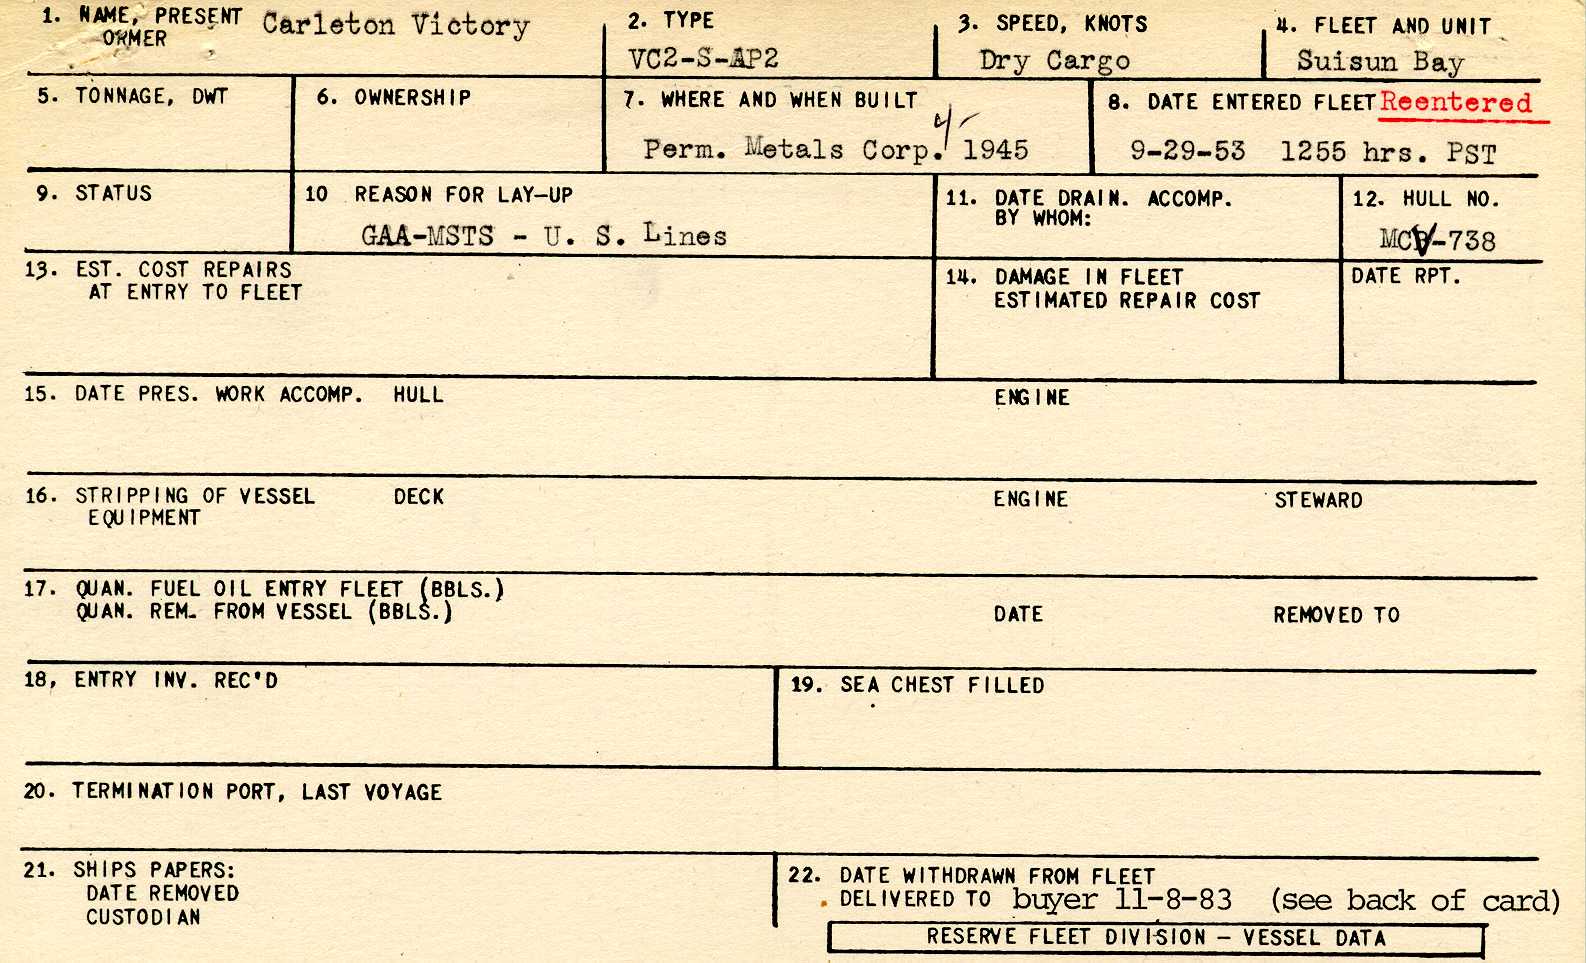 1. NAME, PRESENT Carleton Victory
ORMER
2. TYPE
VC2-S-AP2
3. SPEED, KNOTS
Dry Cargo
4. FLEET AND UNIT
Suisun Bay
5. TONNAGE, DWT
6. OWNERSHIP
7. WHERE AND WHEN BUILT
4-
Perm. Metals Corp. 1945
8. DATE ENTERED FLEET Reentered
9-29-53 1255 hrs. PST
9. STATUS
10 REASON FOR LAY-UP
GAA-MSTS - U. S. Lines
11. DATE DRAIN. ACCOMP.
BY WHOM:
12. HULL NO.
MCV-738
13. EST. COST REPAIRS
AT ENTRY TO FLEET
14. DAMAGE IN FLEET
ESTIMATED REPAIR COST
DATE RPT.
15. DATE PRES. WORK ACCOMP. HULL ENGINE
16. STRIPPING OF VESSEL DECK ENGINE STEWARD
EQUIPMENT
17. QUAN. FUEL OIL ENTRY FLEET (BBLS.)
QUAN. REM. FROM VESSEL (BBLS.) DATE REMOVED TO
18, ENTRY INV. REC'D
19. SEA CHEST FILLED
20. TERMINATION PORT, LAST VOYAGE
21. SHIPS PAPERS:
DATE REMOVED
CUSTODIAN
22. DATE WITHDRAWN FROM FLEET
DELIVERED TO buyer 11-8-83 (see back of card)
RESERVE FLEET DIVISION - VESSEL DATA